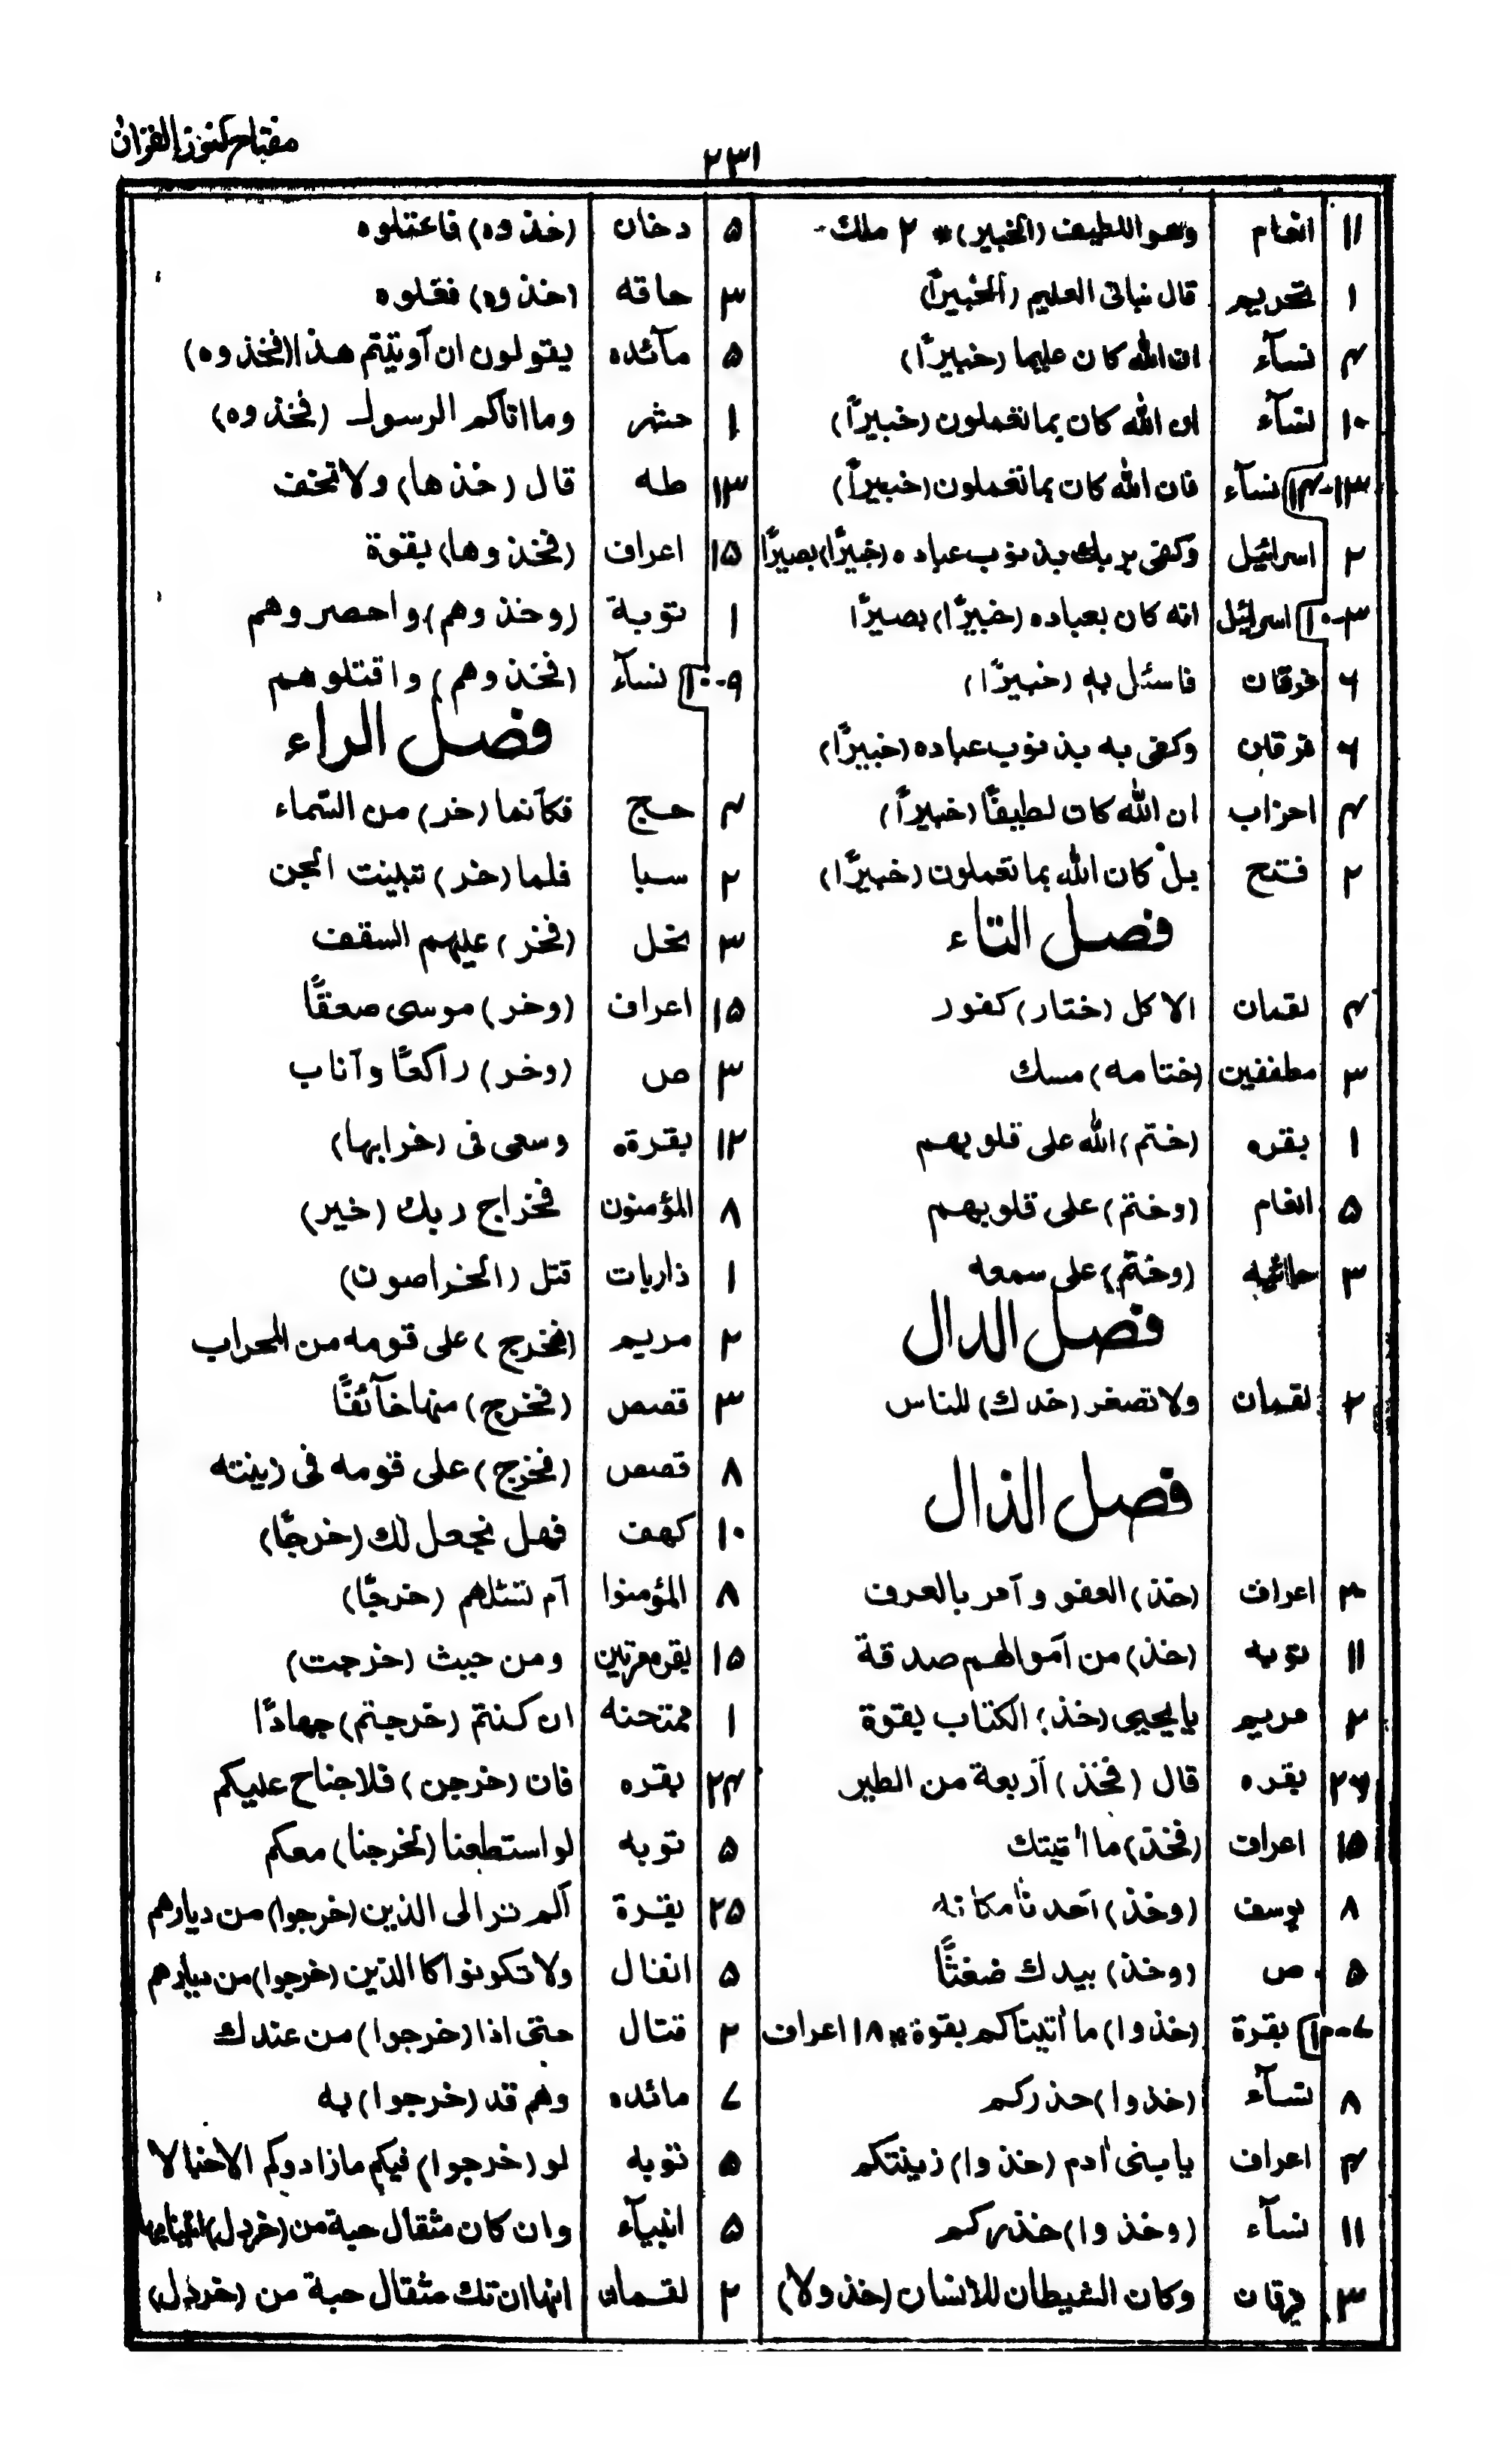 مفتاح كنوز القرآن
٢٣١
١١ انعام وهو اللطيف (الخبير)* ٢ ملك-
١ تحريم قال نبانى العليم (الخبيرًا)
۴ نسآء ان الله كان عليما (خبيرًا)
١٠ نسآء ان الله كان بما تعملون (خبيرًا)
١٣-١۴ نسآء فان الله كان بما تعملون (خبيرًا)
٢ اسرائيل وكفى بربك بذنوب عباده (خبيرًا) بصيرًا
٣-١٠ اسرائيل انه كان بعباده (خبيرًا) بصيرًا
۶ فرقان فاسئل به (خبيرًا)
۶ فرقان وكفى به بذنوب عباده (خبيرًا)
۴ احزاب ان الله كان لطيفًا (خبيرًا)
٢ فتح بل كان الله بما تعملون (خبيرًا)
فصل التاء
۴ لقمان الا كل (ختار) كفور
٣ مطففين (ختامه) مسك
١ بقره (ختم) الله على قلوبهم
۵ انعام (وختم) على قلوبهم
٣ جاثيه (وختم) على سمعه
فصل الدال
٢ لقمان ولا تصغر (خدك) للناس
فصل الذال
اعراف (خذ) العفو و آمر بالعرف
١١ توبه (خذ) من آموالهم صدقة
٢ مريم يا يحيى (خذ) الكتاب بقوة
بقره قال (فخذ) آربعة من الطير
١۵ اعراف (فخذ) ما اٰتيتك
٨ يوسف (وخذ) آحدنا مكانه
۵ ص (وخذ) بيدك ضغثًا
٧-١٠ بقرة (خذوا) ما اٰتيناكم بقوة* ١٨ اعراف
٨ نسآء (خذوا) حذركم
۴ اعراف يا بنى اٰدم (خذوا) زينتكم
١١ نسآء (وخذوا) حذركم
٣ فرقان وكان الشيطان للانسان (خذولا)
۵ دخان (خذوه) فاعتلوه
٣ حاقه (خذوه) فغلوه
۵ مآئده يقولون ان آوتيتم هذا (فخذوه)
١ حشر وما اتاكم الرسول (فخذوه)
١٣ طه قال (خذها) ولا تخف
١۵ اعراف (فخذوها) بقوة
١ توبة (وخذوهم) واحصروهم
٩-١٠ نسآء (فخذوهم) واقتلوهم
فصل الراء
۴ حج فكآنما (خر) من السماء
٢ سبا فلما (خر) تبينت الجن
٣ نحل (فخر) عليهم السقف
١۵ اعراف (وخر) موسى صعقًا
٣ ص (وخر) راكعًا وآناب
١٢ بقرة وسعى فى (خرابها)
٨ المؤمنون فخراج ربك (خير)
١ ذاريات قتل (الخراصون)
٢ مريم (فخرج) على قومه من المحراب
٣ قصص (فخرج) منها خآئفًا
٨ قصص (فخرج) على قومه فى زينته
١٠ كهف فهل نجعل لك (خرجًا)
٨ المؤمنوا آم تسئلهم (خرجًا)
١۵ بقره مرتين ومن حيث (خرجت)
١ ممتحنه ان كنتم (خرجتم) جهادًا
بقره فان (خرجن) فلا جناح عليكم
۵ توبه لو استطعنا (لخرجنا) معكم
٢۵ بقرة آلم تر الى الذين (خرجوا) من ديارهم
۵ انفال ولا تكونوا كا الذين (خرجوا) من ديارهم
٢ قتال حتى اذا (خرجوا) من عندك
٧ مائده وهم قد (خرجوا) به
۵ توبه لو (خرجوا) فيكم ما زادوكم الا خبالا
۵ انبيآء وان كان مثقال حبة من (خردل) اتينا بها
٢ لقمان انها ان تك مثقال حبة من (خردل)